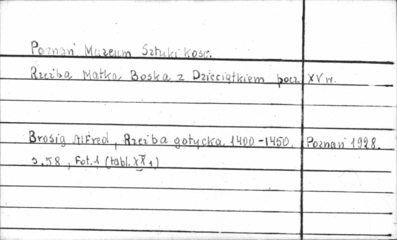 Poznań Muzeum Sztuki Kośc.
Rzeźba Matka Boska z Dzieciątkiem pocz. XV w.
Brosig Alfred, Rzeźba gotycka 1400-1450. Poznań 1928.
s. 58, Fot. 1 (tabl. XX, 1)